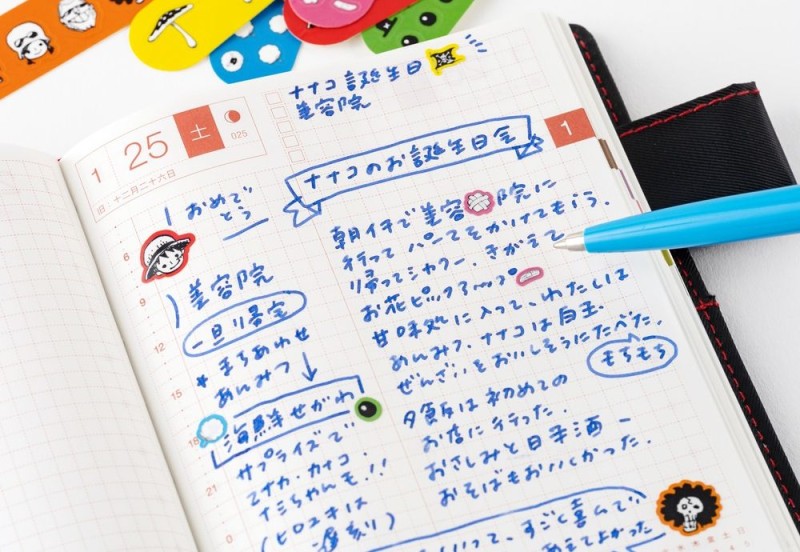 ナナコ 誕生日
美容院
1 25 土
025
旧 十二月二十六日
1
ナナコのお誕生日会
おめで
とう
朝イチで美容院に
行ってパーマをかけてもらう.
帰ってシャワー. きがえて
お花ピックアップ
甘味処に入って、わたしは
あんみつ、ナナコは白玉
ぜんざいをおいしそうにたべた.
もちもち
夕飯は初めての
お店に行った.
おさしみと日本酒
おそばもおいしかった.
6
美容院
9
一旦り帰宅
12
まちあわせ
あんみつ
15
海鮮せがわ
18
サプライズで
カナコ.
ミちゃんも!!
21
(ヒロユキは
遅刻)
0
って、すごく喜んで
あえてよかった